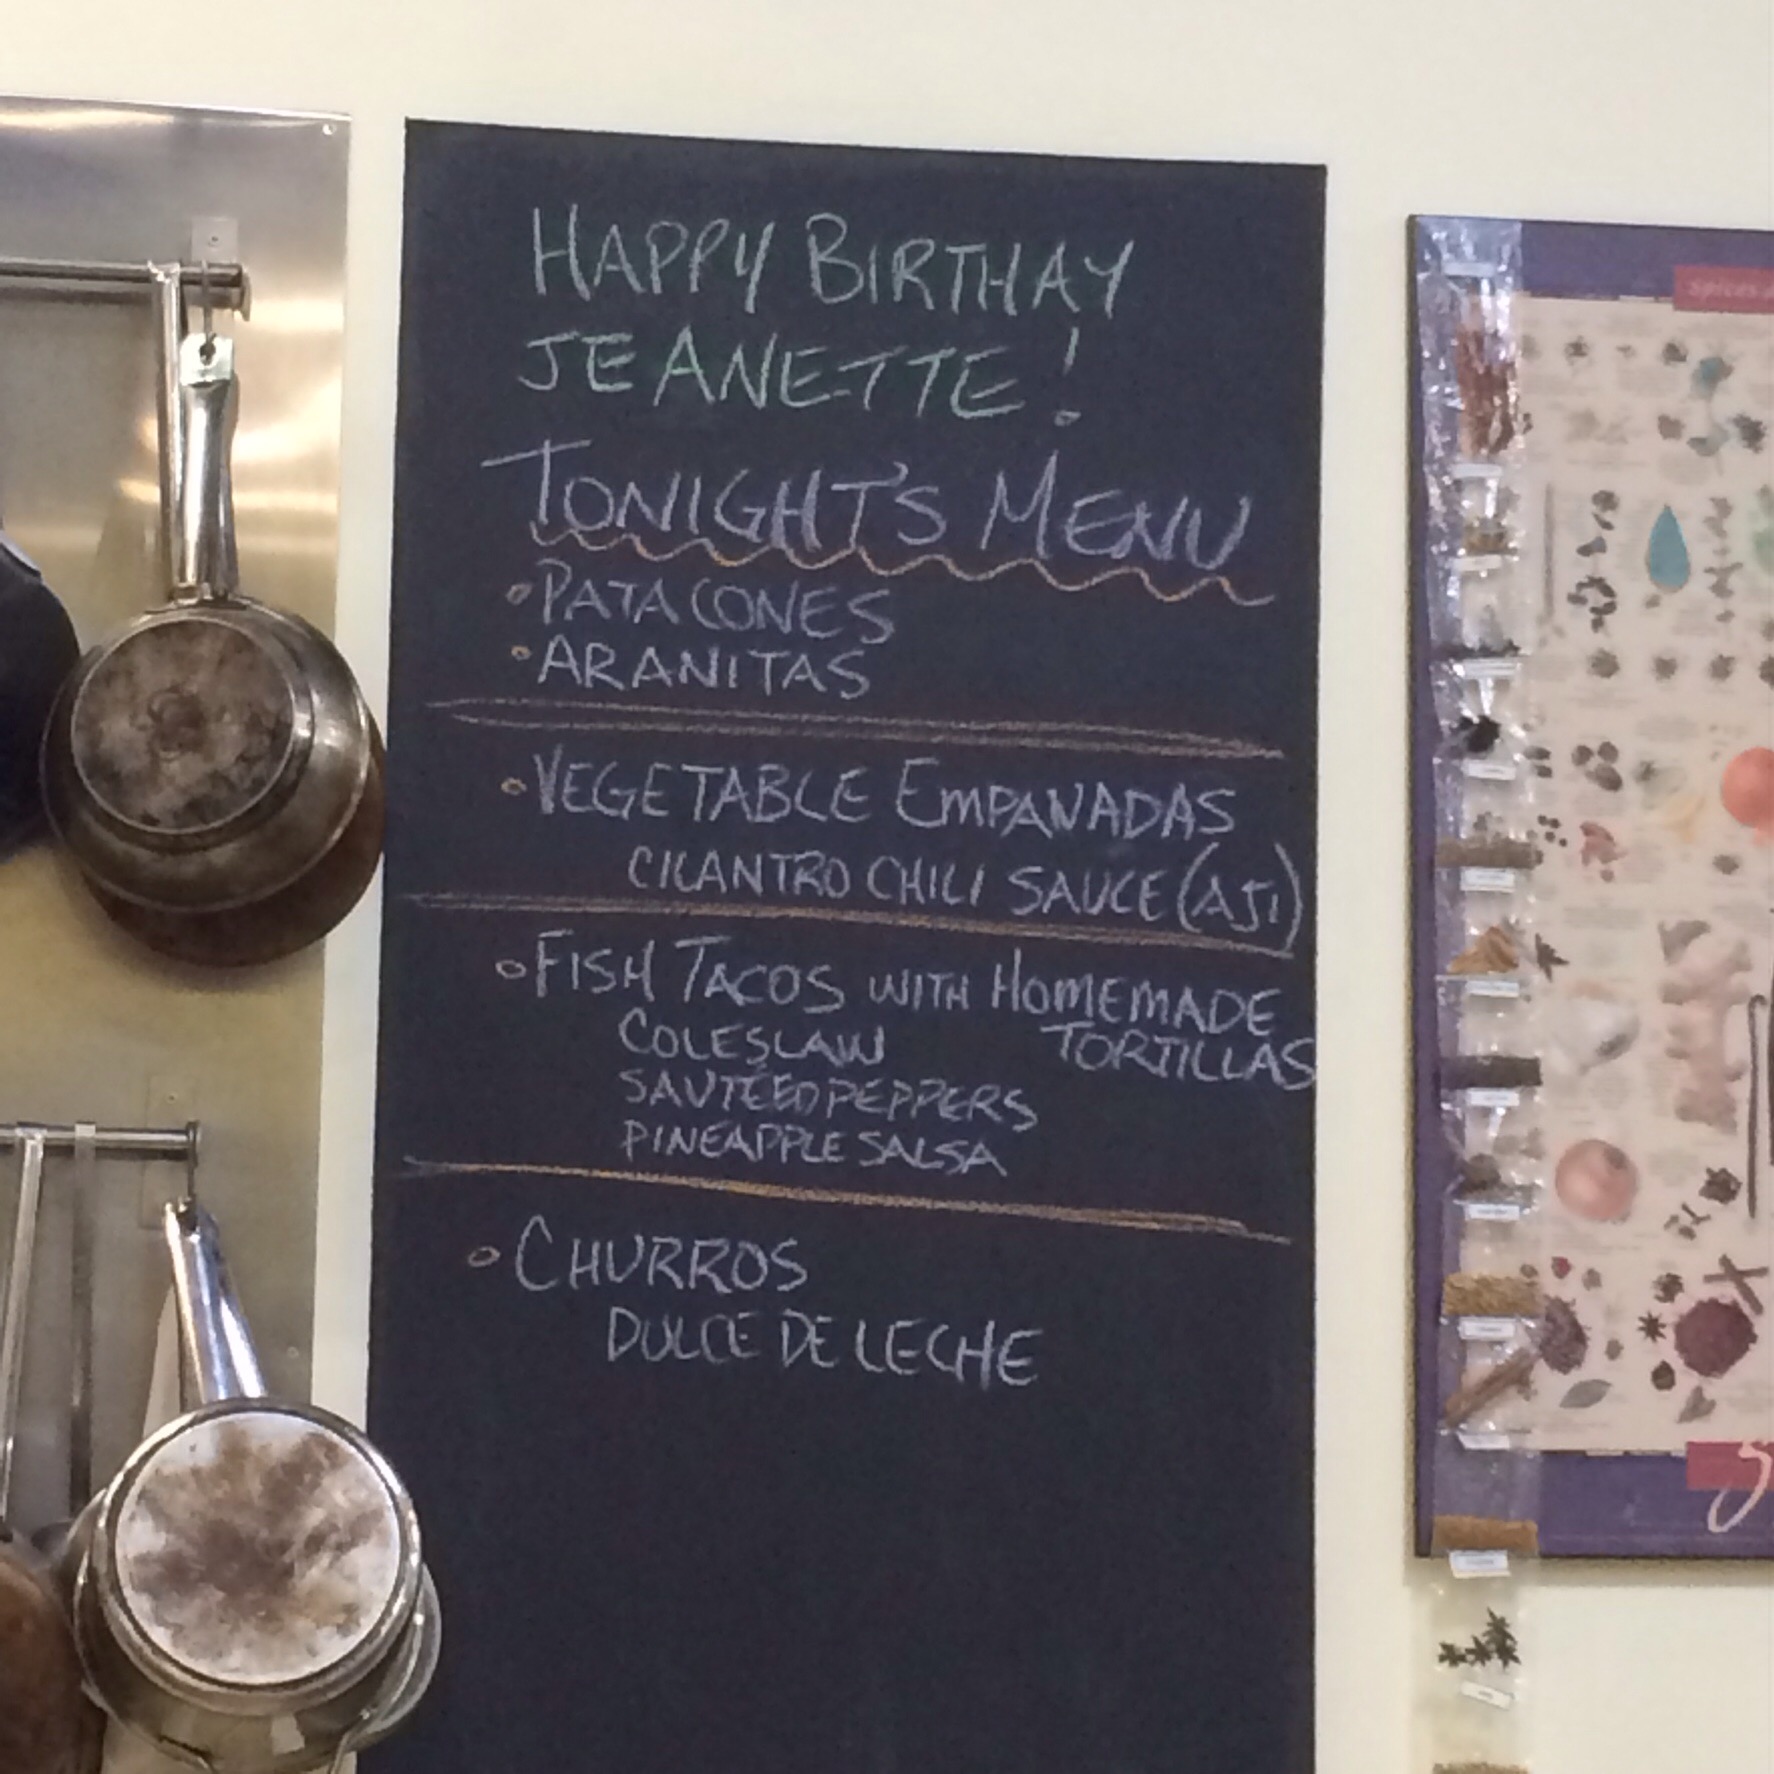 HAPPY BIRTHAY
JEANETTE!
TONIGHT'S MENU
• PATACONES
• ARANITAS
• VEGETABLE EMPANADAS
CILANTRO CHILI SAUCE (AJI)
• FISH TACOS WITH HOMEMADE
TORTILLAS
COLESLAW
SAUTÉED PEPPERS
PINEAPPLE SALSA
• CHURROS
DULCE DE LECHE
spices